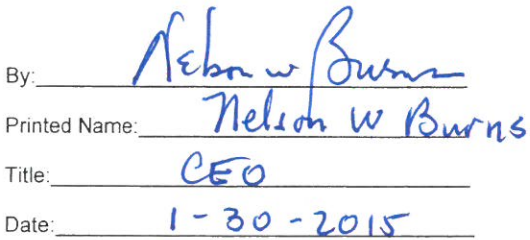 By: Nelson W Burns
Printed Name: Nelson W Burns
Title: CEO
Date: 1-30-2015